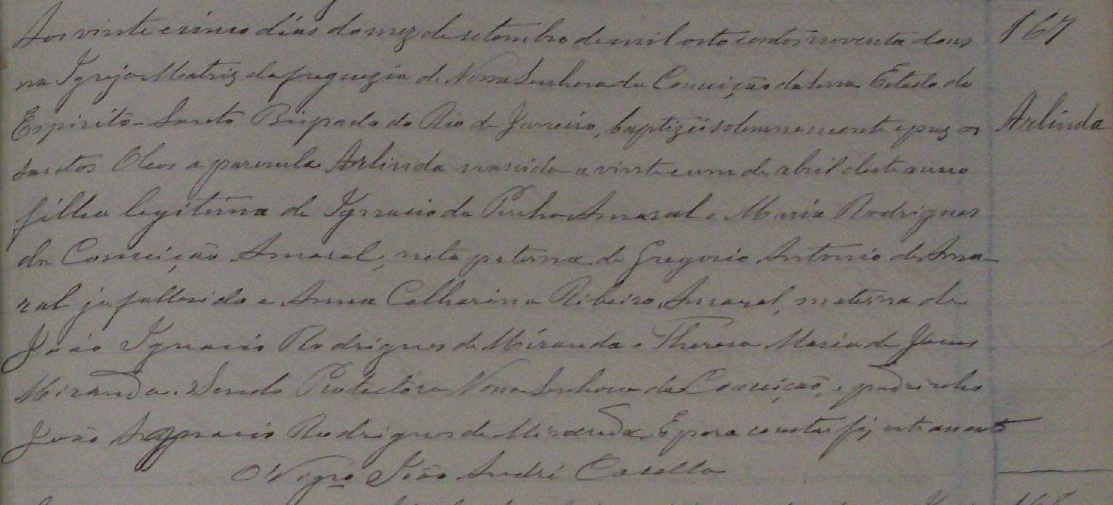 Aos vinte e cinco dias do mez de setembro de mil oito centos noventa dous
167
na Igreja Matriz da freguezia de Nossa Senhora da Conceição da Serra Estado do
Espirito-Santo Bispado do Rio de Janeiro, baptizei solemnemente e puz os
Arlinda
santos Oleos a parvula Arlinda nascida a vinte e um de abril deste anno
filha legitima de Ignacio da Amaral e Maria Rodrigues
da Conceição Amaral, neta paterna de Gregorio Antonio do Ama-
ral ja fallecido e Anna Catharina Ribeiro Amaral, materna de
João Ignacio Rodrigues de Miranda e Theresa Maria de Jesus
Miranda. Sendo Protectora Nossa Senhora da Conceição, e padrinho
João Ignacio Rodrigues de Miranda. E para constar fiz este assento
O Vigro João André Casella
168